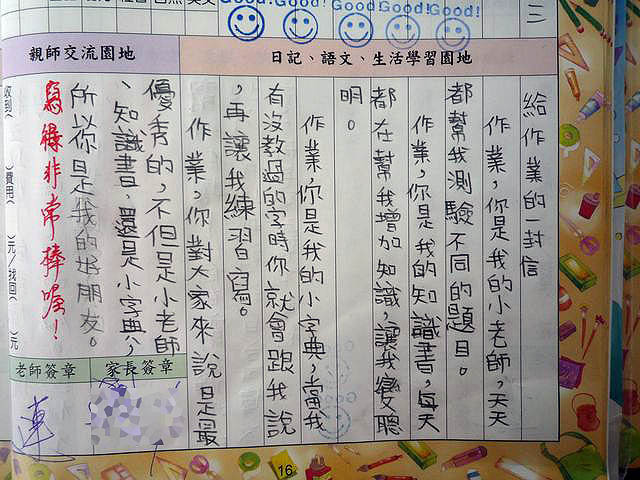 Good! Good! Good! Good! Good!
三
日記、語文、生活學習園地
親師交流園地
給作業的一封信
作業,你是我的小老師,天天
都幫我測驗不同的題目。
作業,你是我的知識書,每天
都在幫我增加知識,讓我變聰
明。
作業,你是我的小字典,當我
有沒教過的字時你就會跟我說
,再讓我練習寫。
作業,你對大家來說是最
優秀的,不但是小老師
、知識書,還是小字典,
所以你是我的好朋友。
寫得非常棒喔!
收到( )費用( )元/找回( )元
家長簽章
老師簽章
連
16